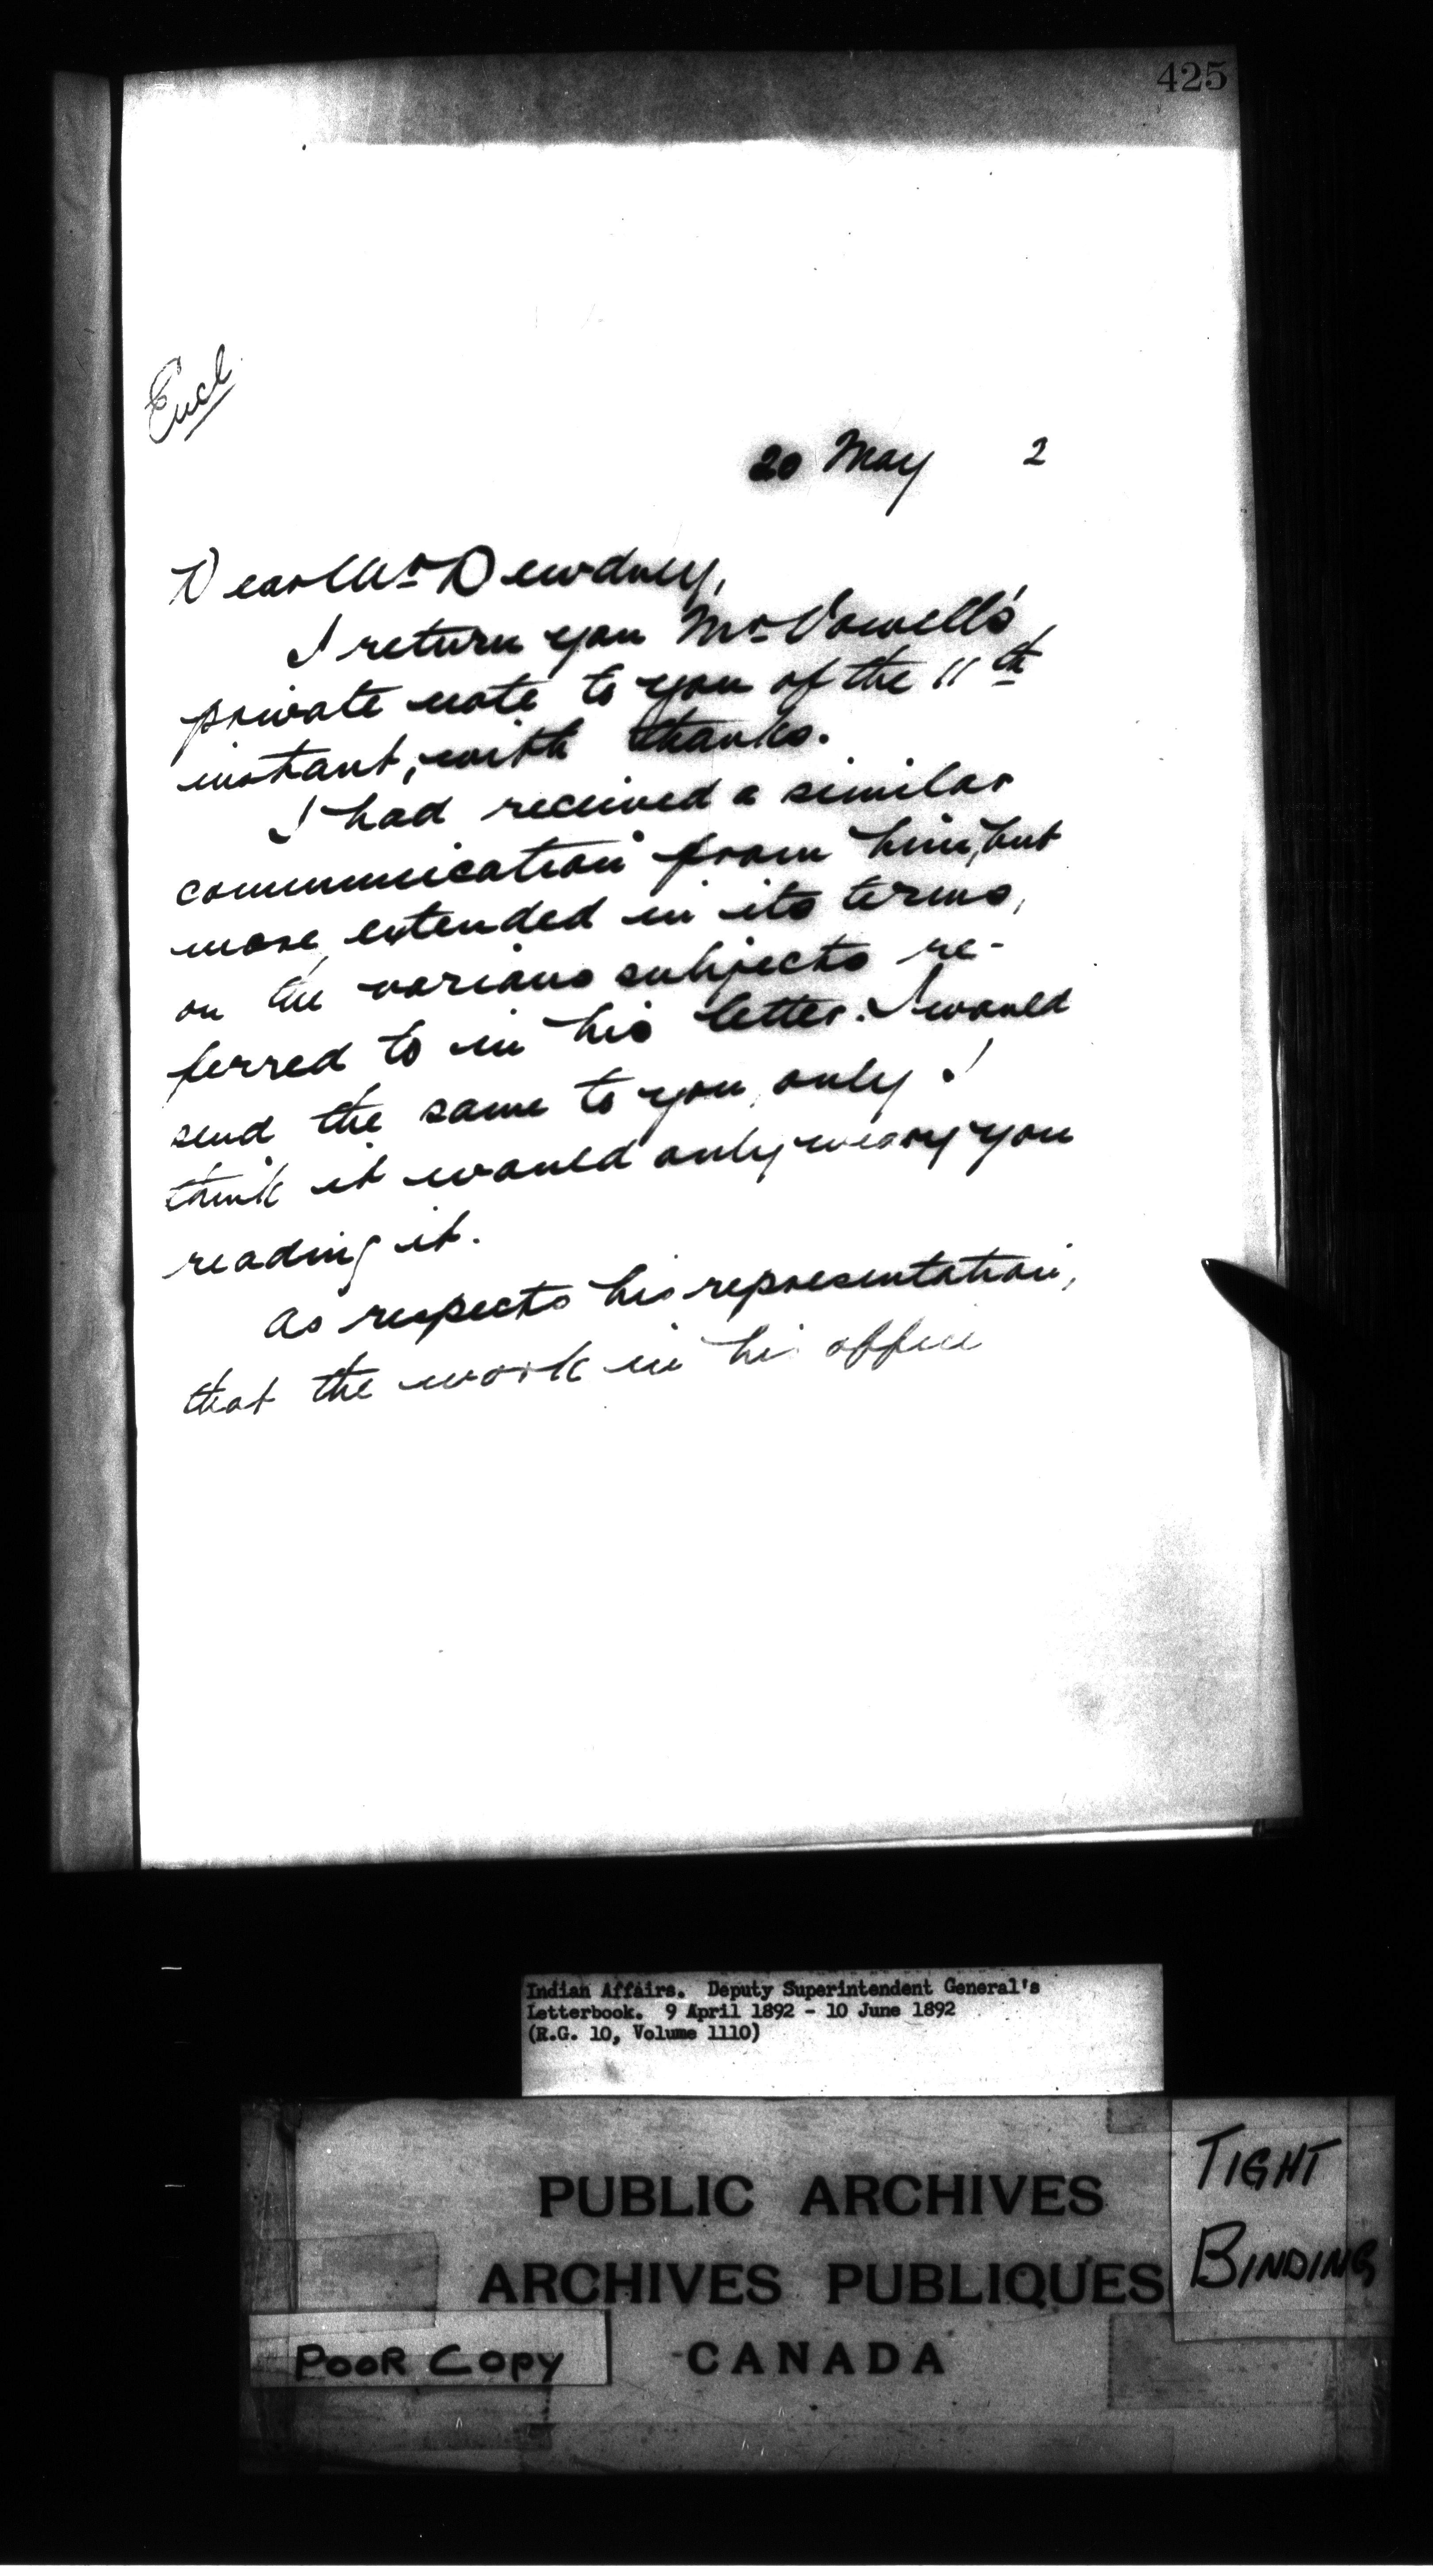 425
Encl.
20 May 2
Dear Mr Dewdney,
I return you Mr Vowell's
private note to you of the 11th
instant, with thanks.
I had received a similar
communication from him, but
more extended in its terms,
on the various subjects re-
ferred to in his letter. I would
send the same to you, only I
think it would only weary you
reading it.
As respects his representation,
that the work in his office
Indian Affairs. Deputy Superintendent General's
Letterbook. 9 April 1892 - 10 June 1892
(R.G. 10, Volume 1110)
PUBLIC ARCHIVES
ARCHIVES PUBLIQUES
CANADA
TIGHT
BINDING
POOR COPY